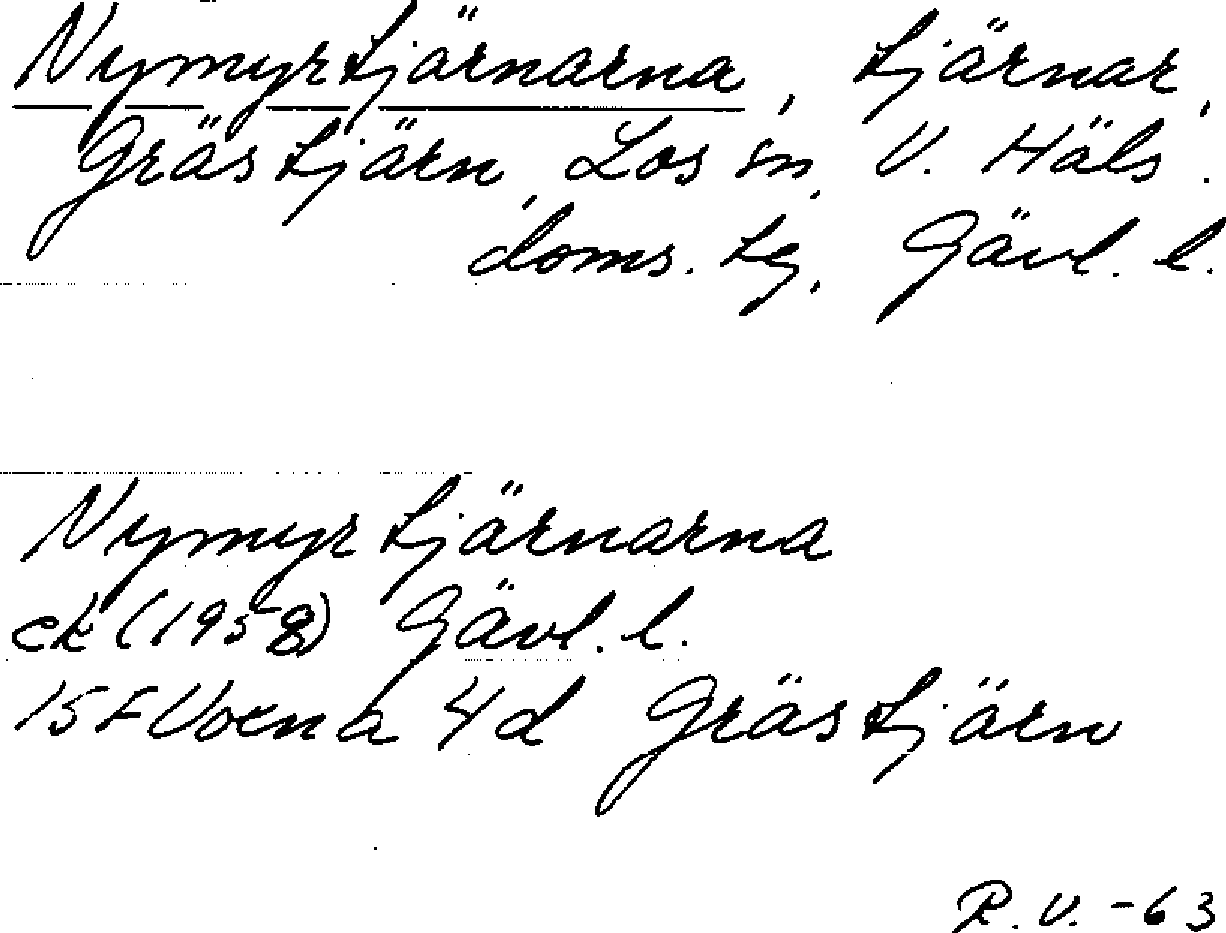 Nymyrtjärnarna, tjärnar,
Grästjärn, Los sn, V. Häls.
doms. tg, Gävl. l.
Nymyrtjärnarna
ek (1958) Gävl. l.
15F Voxna 4d Grästjärn
R.V. -63